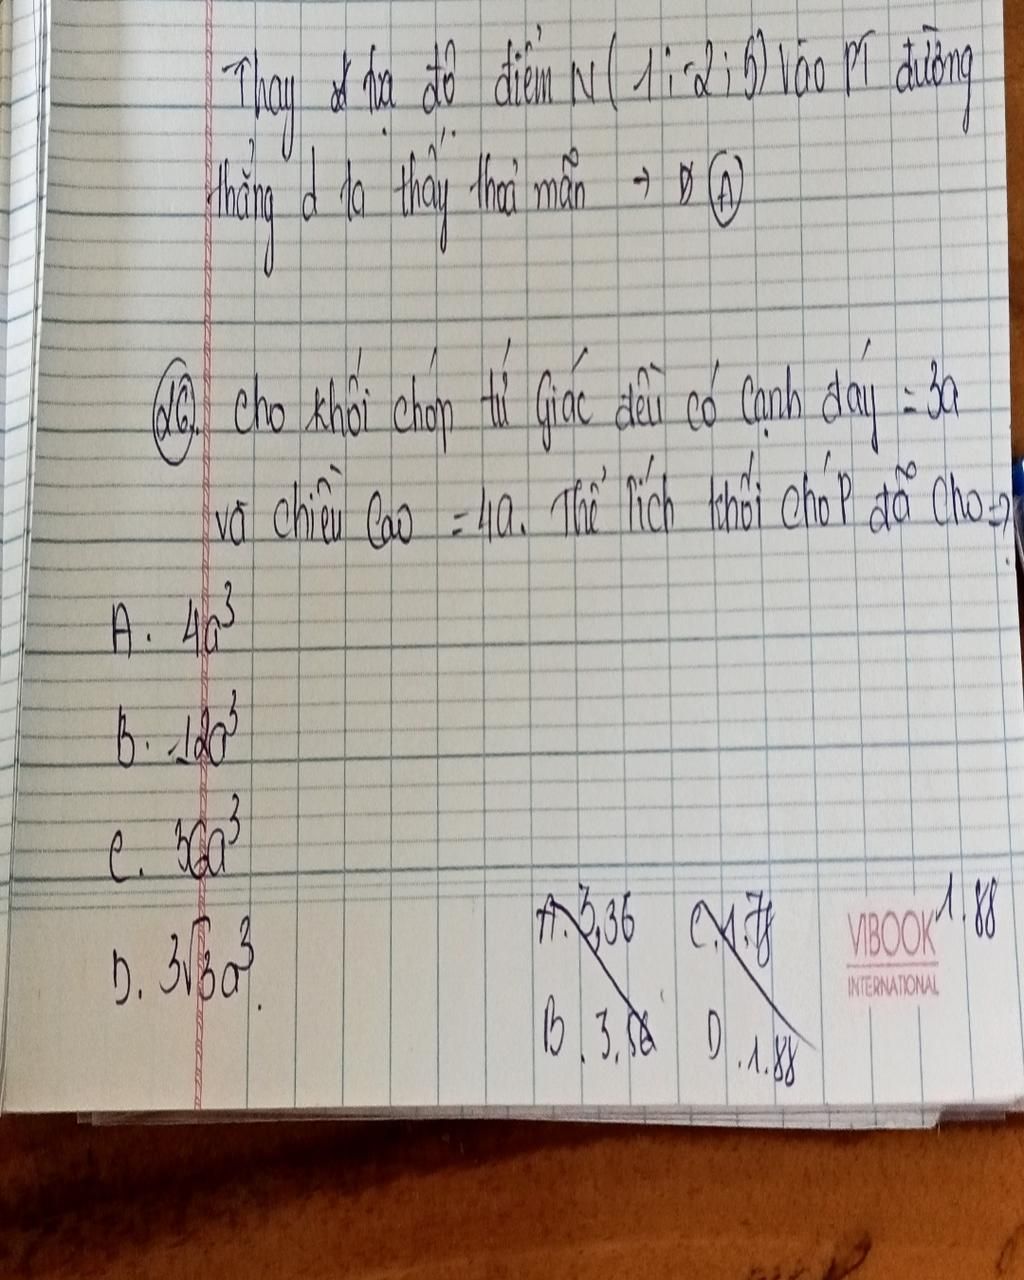 Thay tọa độ điểm N(1;-2;5) vào PT đường
thẳng d ta thấy thoả mãn → A
26. Cho khối chóp tứ giác đều có cạnh đáy = 3a
và chiều cao = 4a. Thể tích khối chóp đã cho = ?
A. 4a³
B. 12a³
C. 36a³
D. 3√3a³.
A. 3,36 C. 1.78
B. 3,56 D. 1.88
1.88
VIBOOK
INTERNATIONAL